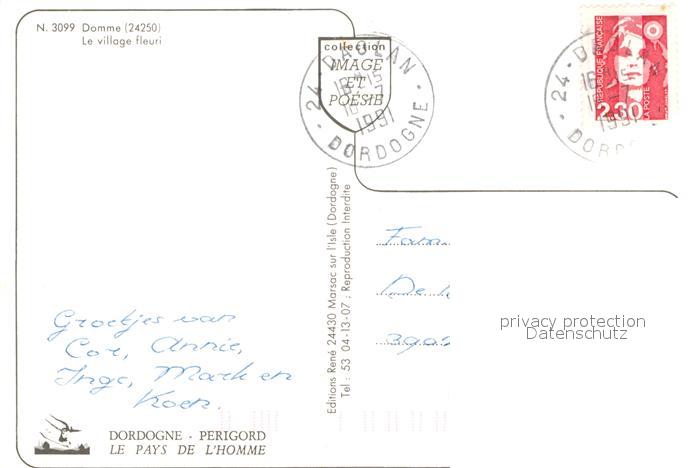 N. 3099 Domme (24250)
Le village fleuri
collection
IMAGE
ET
POÉSIE
24 - DAGLAN -
16 -7
1991
DORDOGNE
24 -
16
1991
DORD
RÉPUBLIQUE FRANÇAISE
2,30
LA POSTE
Editions René 24430 Marsac sur l'Isle (Dordogne)
Tel : 53 04-13-07 ; Reproduction Interdite
Fam
De
3905
privacy protection
Datenschutz
Groetjes van
Cor, Annie,
Inge, Mark en
Koen.
DORDOGNE - PERIGORD
LE PAYS DE L'HOMME